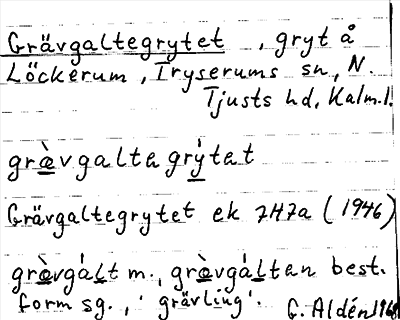 Grävgaltegrytet, gryt å
Löckerum, Tryserums sn, N.
Tjusts hd, Kalm.l.
grävgaltagrýtat
Grävgaltegrytet ek 7H7a (1946)
grävgált m., grävgáltan best.
form sg., 'grävling'. G. Aldén